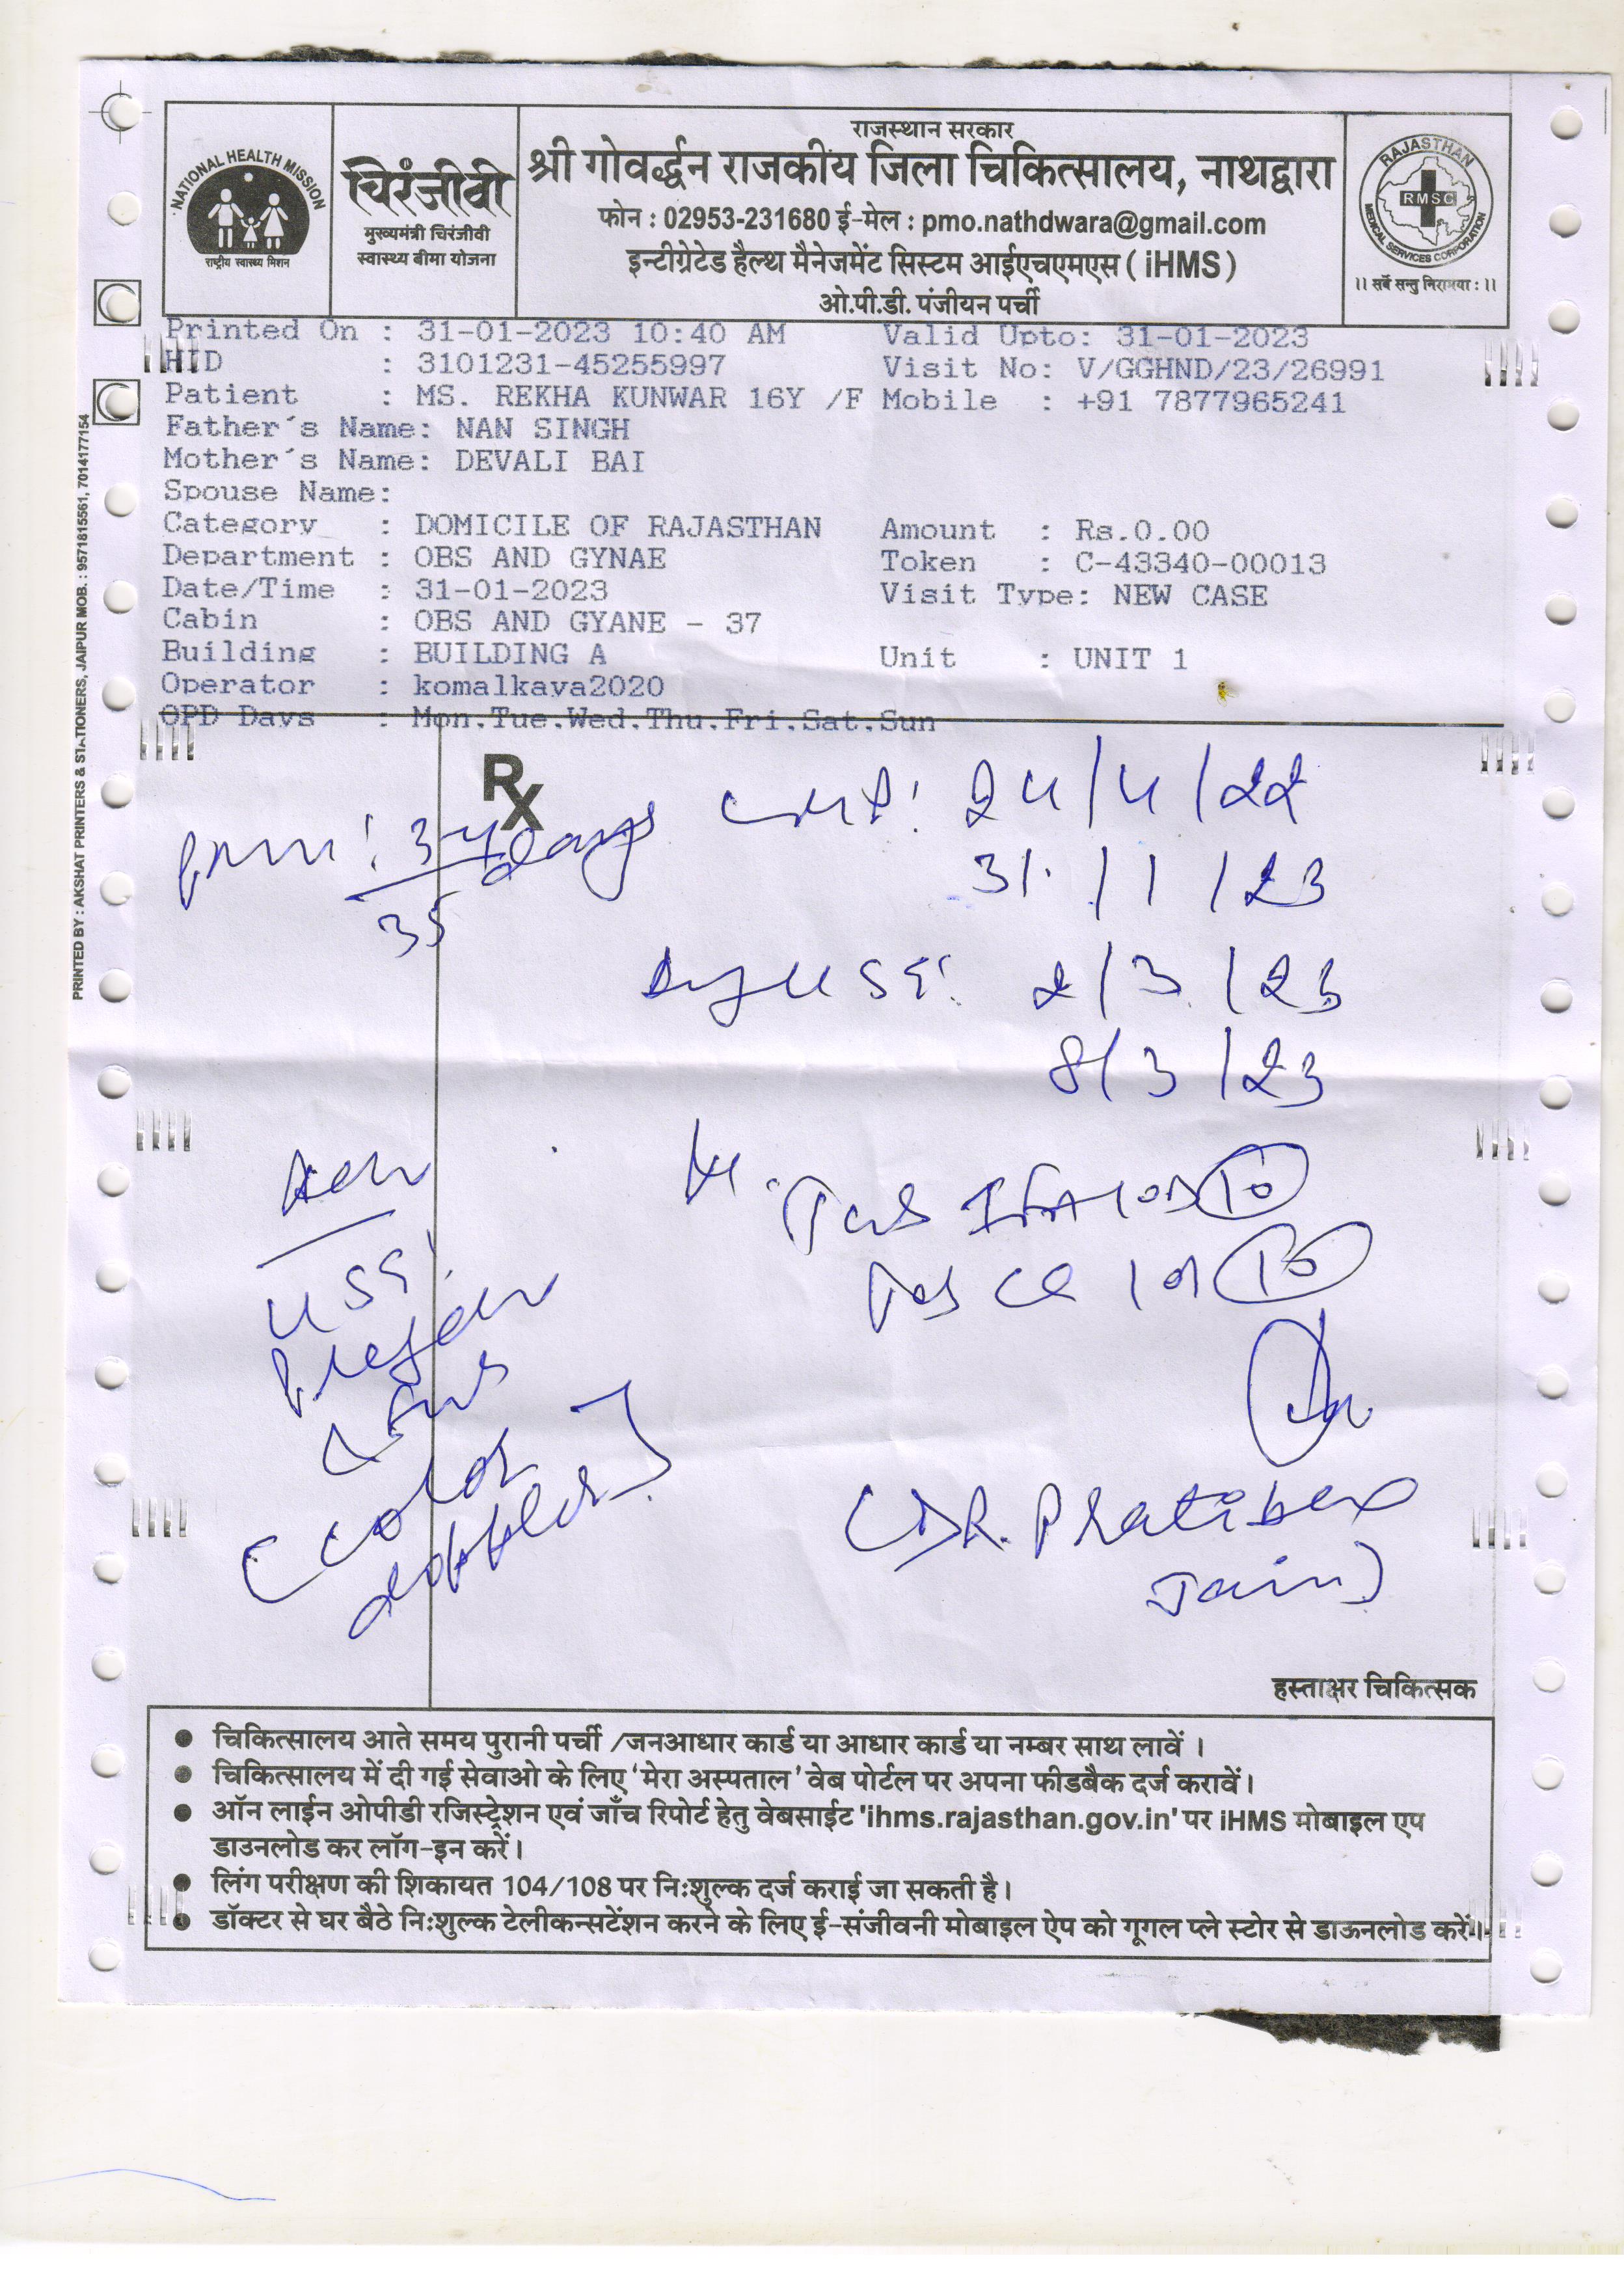 राजस्थान सरकार
श्री गोवर्द्धन राजकीय जिला चिकित्सालय, नाथद्वारा
फोन : 02953-231680 ई-मेल : pmo.nathdwara@gmail.com
इन्टीग्रेटेड हैल्थ मैनेजमेंट सिस्टम आईएचएमएस ( iHMS )
ओ.पी.डी. पंजीयन पर्ची
NATIONAL HEALTH MISSION
राष्ट्रीय स्वास्थ्य मिशन
चिरंजीवी
मुख्यमंत्री चिरंजीवी
स्वास्थ्य बीमा योजना
RAJASTHAN
RMSC
MEDICAL SERVICES CORPORATION
।। सर्वे सन्तु निरामया : ।।
Printed On : 31-01-2023 10:40 AM Valid Upto: 31-01-2023
HID : 3101231-45255997 Visit No: V/GGHND/23/26991
Patient : MS. REKHA KUNWAR 16Y /F Mobile : +91 7877965241
Father´s Name: NAN SINGH
Mother´s Name: DEVALI BAI
Spouse Name:
Category : DOMICILE OF RAJASTHAN Amount : Rs.0.00
Department : OBS AND GYNAE Token : C-43340-00013
Date/Time : 31-01-2023 Visit Type: NEW CASE
Cabin : OBS AND GYANE - 37
Building : BUILDING A Unit : UNIT 1
Operator : komalkava2020
OPD Days : Mon,Tue,Wed,Thu,Fri,Sat,Sun
PRINTED BY : AKSHAT PRINTERS & STATIONERS, JAIPUR MOB. : 9571815561, 7014177154
Rx
LMP: 24/4/22
days
35
31/1/23
USG: 2/3/23
8/3/23
Adv
Tab IFA 1 OD 10
USG
Tab CC 1 OD 10
(color
doppler)
(DR. Pratibha
Jain)
हस्ताक्षर चिकित्सक
● चिकित्सालय आते समय पुरानी पर्ची /जनआधार कार्ड या आधार कार्ड या नम्बर साथ लावें ।
● चिकित्सालय में दी गई सेवाओ के लिए 'मेरा अस्पताल' वेब पोर्टल पर अपना फीडबैक दर्ज करावें।
● ऑन लाईन ओपीडी रजिस्ट्रेशन एवं जाँच रिपोर्ट हेतु वेबसाईट 'ihms.rajasthan.gov.in' पर iHMS मोबाइल एप
डाउनलोड कर लॉग-इन करें।
● लिंग परीक्षण की शिकायत 104/108 पर निःशुल्क दर्ज कराई जा सकती है।
● डॉक्टर से घर बैठे निःशुल्क टेलीकन्सटेंशन करने के लिए ई-संजीवनी मोबाइल ऐप को गूगल प्ले स्टोर से डाऊनलोड करें।